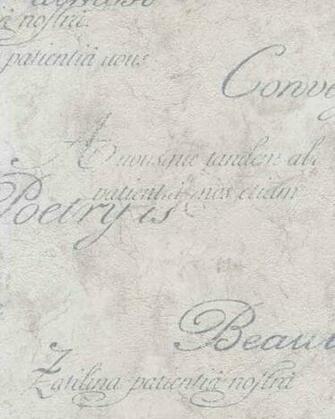 a nostra
patientia nous
Conve
A nousque tandem ab
patientia mos etiam
Poetry is
Beau
Zatilina patientia nostra